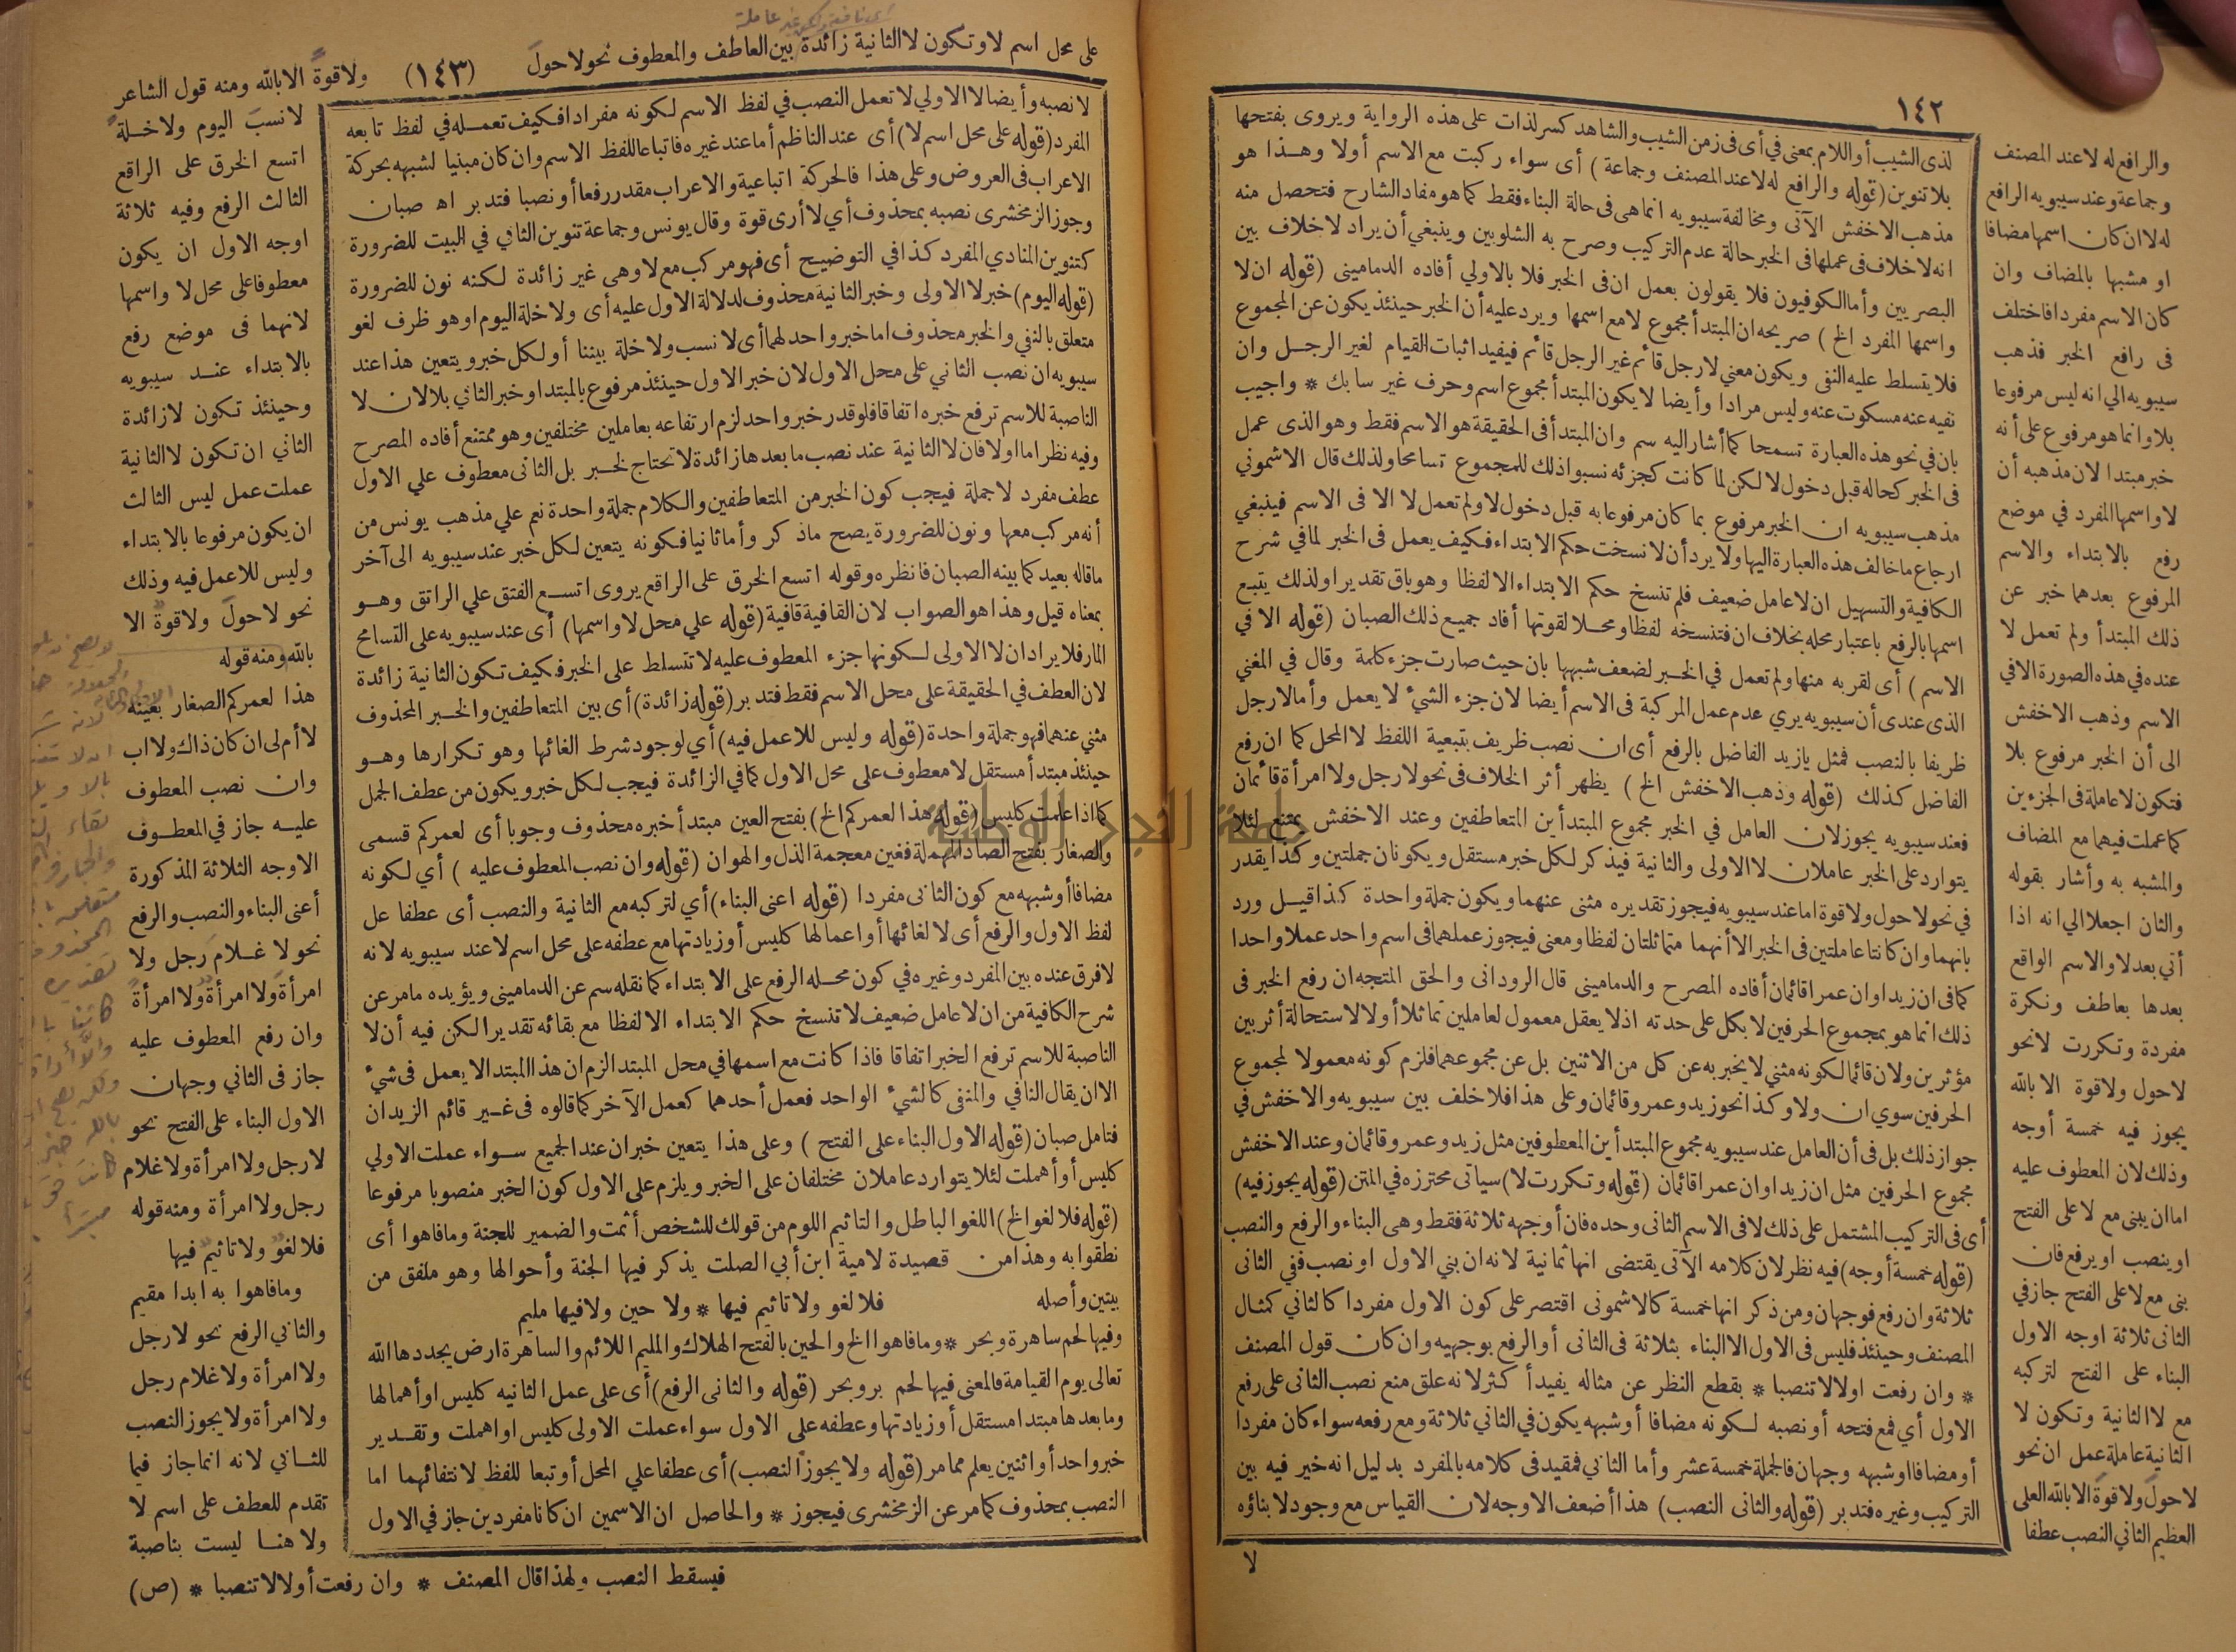 ١٤٢
والرافع له لا عند المصنف
وجماعة وعند سيبويه الرافع
له لا ان كان اسمها مضافا
او مشبها بالمضاف وان
كان الاسم مفردا فاختلف
فى رافع الخبر فذهب
سيبويه الي انه ليس مرفوعا
بلا وانما هو مرفوع على أنه
خبر مبتدا لان مذهبه أن
لا واسمها المفرد في موضع
رفع بالابتداء والاسم
المرفوع بعدهما خبر عن
ذلك المبتدأ ولم تعمل لا
عنده في هذه الصورة الا في
الاسم وذهب الاخفش
الى أن الخبر مرفوع بلا
فتكون لا عاملة فى الجزءين
كما عملت فيهما مع المضاف
والمشبه به وأشار بقوله
والثان اجعلا الي انه اذا
أتي بعد لا والاسم الواقع
بعدها بعاطف ونكرة
مفردة وتكررت لا نحو
لا حول ولا قوة الا بالله
يجوز فيه خمسة أوجه
وذلك لان المعطوف عليه
اما ان يبنى مع لا على الفتح
او ينصب او يرفع فان
بنى مع لا على الفتح جاز في
الثانى ثلاثة اوجه الاول
البناء على الفتح لتركبه
مع لا الثانية وتكون لا
الثانية عاملة عمل ان نحو
لا حولَ ولا قوةَ الا بالله العلى
العظيم الثاني النصب عطفا
لذى الشيب أو اللام بمعنى في أى فى زمن الشيب والشاهد كسر لذات على هذه الرواية ويروى بفتحها
بلا تنوين (قوله والرافع له لا عند المصنف وجماعة) أى سواء ركبت مع الاسم أولا وهذا هو
مذهب الاخفش الآتى ومخالفة سيبويه انما هى فى حالة البناء فقط كما هو مفاد الشارح فتحصل منه
انه لا خلاف فى عملها فى الخبر حالة عدم التركيب وصرح به الشلوبين وينبغي أن يراد لا خلاف بين
البصريين وأما الكوفيون فلا يقولون بعمل ان فى الخبر فلا بالاولي أفاده الدمامينى (قوله ان لا
واسمها المفرد الخ) صريحه ان المبتدأ مجموع لا مع اسمها ويرد عليه أن الخبر حينئذ يكون عن المجموع
فلا يتسلط عليه النفى ويكون معني لا رجل قائم غير الرجل قائم فيفيد اثبات القيام لغير الرجل وان
نفيه عنه مسكوت عنه وليس مرادا وأيضا لا يكون المبتدأ مجموع اسم وحرف غير سابك * واجيب
بان في نحو هذه العبارة تسمحا كما أشار اليه سم وان المبتدأ فى الحقيقة هو الاسم فقط وهو الذى عمل
فى الخبر كحاله قبل دخول لا لكن لما كانت كجزئه نسبوا ذلك للمجموع تسامحا ولذلك قال الاشموني
مذهب سيبويه ان الخبر مرفوع بما كان مرفوعا به قبل دخول لا ولم تعمل لا الا فى الاسم فينبغي
ارجاع ما خالف هذه العبارة اليها ولا يرد أن لا نسخت حكم الابتداء فكيف يعمل فى الخبر لما في شرح
الكافية والتسهيل ان لا عامل ضعيف فلم تنسخ حكم الابتداء الا لفظا وهو باق تقديرا ولذلك يتبع
اسمها بالرفع باعتبار محله بخلاف ان فتنسخه لفظا ومحلا لقوتها أفاد جميع ذلك الصبان (قوله الا في
الاسم) أى لقربه منها ولم تعمل في الخبر لضعف شبهها بان حيث صارت جزء كلمة وقال في المغني
الذى عندى أن سيبويه يري عدم عمل المركبة فى الاسم أيضا لان جزء الشئ لا يعمل وأما لا رجل
ظريفا بالنصب فمثل يا زيد الفاضل بالرفع أى ان نصب ظريف بتبعية اللفظ لا المحل كما ان رفع
الفاضل كذلك (قوله وذهب الاخفش الخ) يظهر أثر الخلاف فى نحو لا رجل ولا امرأة قائمان
فعند سيبويه يجوز لان العامل في الخبر مجموع المبتدأين المتعاطفين وعند الاخفش يمتنع لئلا
يتوارد على الخبر عاملان لا الاولى والثانية فيذكر لكل خبر مستقل ويكونان جملتين وكذا يقدر
في نحو لا حول ولا قوة اما عند سيبويه فيجوز تقديره مثنى عنهما ويكون جملة واحدة كذا قيل ورد
بانهما وان كانتا عاملتين فى الخبر الا أنهما متماثلتان لفظا ومعنى فيجوز عملهما فى اسم واحد عملا واحدا
كما فى ان زيدا وان عمرا قائمان أفاده المصرح والدمامينى قال الرودانى والحق المتجه ان رفع الخبر فى
ذلك انما هو بمجموع الحرفين لا بكل على حدته اذ لا يعقل معمول لعاملين تماثلا أولا لاستحالة أثر بين
مؤثرين ولان قائما لكونه مثني لا يخبر به عن كل من الاثنين بل عن مجموعهما فلزم كونه معمولا لمجموع
الحرفين سوي ان ولا وكذا نحو زيد وعمرو قائمان وعلى هذا فلا خلف بين سيبويه والاخفش في
جواز ذلك بل فى أن العامل عند سيبويه مجموع المبتدأين المعطوفين مثل زيد وعمرو قائمان وعند الاخفش
مجموع الحرفين مثل ان زيدا وان عمرا قائمان (قوله وتكررت لا) سيأتى محترزه في المتن (قوله يجوز فيه)
أى فى التركيب المشتمل على ذلك لا فى الاسم الثانى وحده فان أوجهه ثلاثة فقط وهى البناء والرفع والنصب
(قوله خمسة أوجه) فيه نظر لان كلامه الآتى يقتضى انها ثمانية لانه ان بني الاول او نصب ففي الثانى
ثلاثة وان رفع فوجهان ومن ذكر انها خمسة كالاشمونى اقتصر على كون الاول مفردا كالثاني كمثال
المصنف وحينئذ فليس فى الاول الا البناء بثلاثة فى الثانى أو الرفع بوجهيه وان كان قول المصنف
* وان رفعت اولا لا تنصبا * بقطع النظر عن مثاله يفيد أكثر لانه علق منع نصب الثانى على رفع
الاول أي فمع فتحه أو نصبه لكونه مضافا أو شبهه يكون في الثاني ثلاثة ومع رفعه سواء كان مفردا
أو مضافا او شبهه وجهان فالجملة خمسة عشر وأما الثاني فمقيد فى كلامه بالمفرد بدليل انه خير فيه بين
التركيب وغيره فتدبر (قوله والثانى النصب) هذا أضعف الاوجه لان القياس مع وجود لا بناؤه
لا
على محل اسم لا وتكون لا الثانية زائدة بين العاطف والمعطوف نحو لا حولَ
(١٤٣)
ولا قوةً الا بالله ومنه قول الشاعر
لا نسبَ اليوم ولا خلةً
اتسع الخرق على الراقع
الثالث الرفع وفيه ثلاثة
اوجه الاول ان يكون
معطوفا على محل لا واسمها
لانهما فى موضع رفع
بالابتداء عند سيبويه
وحينئذ تكون لا زائدة
الثاني ان تكون لا الثانية
عملت عمل ليس الثالث
ان يكون مرفوعا بالابتداء
وليس للا عمل فيه وذلك
نحو لا حولَ ولا قوةٌ الا
بالله ومنه قوله
هذا لعمركم الصغار بعينه
لا أم لى ان كان ذاك ولا اب
وان نصب المعطوف
عليه جاز في المعطوف
الاوجه الثلاثة المذكورة
أعنى البناء والنصب والرفع
نحو لا غلامَ رَجل ولا
امرأةَ ولا امرأةٌ ولا امرأةً
وان رفع المعطوف عليه
جاز فى الثاني وجهان
الاول البناء على الفتح نحو
لا رجل ولا امرأة ولا غلام
رجل ولا امرأة ومنه قوله
فلا لغوٌ ولا تاثيمَ فيها
وما فاهوا به ابدا مقيم
والثاني الرفع نحو لا رجل
ولا امرأة ولا غلام رجل
ولا امرأة ولا يجوز النصب
للثاني لانه انما جاز فيما
تقدم للعطف على اسم لا
ولا هنا ليست بناصبة
فيسقط النصب ولهذا قال المصنف * وان رفعت أولا لا تنصبا * (ص)
لا نصبه وأيضا لا الاولي لا تعمل النصب في لفظ الاسم لكونه مفردا فكيف تعمله في لفظ تابعه
المفرد (قوله على محل اسم لا) أى عند الناظم أما عند غيره فاتباعا للفظ الاسم وان كان مبنيا لشبهه بحركة
الاعراب فى العروض وعلى هذا فالحركة اتباعية والاعراب مقدر رفعا أو نصبا فتدبر اه صبان
وجوز الزمخشرى نصبه بمحذوف أي لا أرى قوة وقال يونس وجماعة تنوين الثاني في البيت للضرورة
كتنوين المنادي المفرد كذا في التوضيح أى فهو مركب مع لا وهى غير زائدة لكنه نون للضرورة
(قوله اليوم) خبر لا الاولى وخبر الثانية محذوف لدلالة الاول عليه أى ولا خلة اليوم او هو ظرف لغو
متعلق بالنفي والخبر محذوف اما خبر واحد لهما أى لا نسب ولا خلة بيننا أو لكل خبر ويتعين هذا عند
سيبويه ان نصب الثاني على محل الاول لان خبر الاول حينئذ مرفوع بالمبتدا وخبر الثاني بلا لان لا
الناصبة للاسم ترفع خبره اتفاقا فلو قدر خبر واحد لزم ارتفاعه بعاملين مختلفين وهو ممتنع أفاده المصرح
وفيه نظر اما اولا فان لا الثانية عند نصب ما بعدها زائدة لا تحتاج لخبر بل الثانى معطوف علي الاول
عطف مفرد لا جملة فيجب كون الخبر من المتعاطفين والكلام جملة واحدة نعم علي مذهب يونس من
أنه مركب معها ونون للضرورة يصح ما ذكر وأما ثانيا فكونه يتعين لكل خبر عند سيبويه الى آخر
ما قاله بعيد كما بينه الصبان فانظره وقوله اتسع الخرق على الراقع يروى اتسع الفتق علي الراتق وهو
بمعناه قيل وهذا هو الصواب لان القافية قافية (قوله علي محل لا واسمها) أى عند سيبويه على التسامح
المار فلا يراد ان لا الاولى لكونها جزء المعطوف عليه لا تتسلط على الخبر فكيف تكون الثانية زائدة
لان العطف في الحقيقة على محل الاسم فقط فتدبر (قوله زائدة) أى بين المتعاطفين والخبر المحذوف
مثني عنهما فهو جملة واحدة (قوله وليس للا عمل فيه) أي لوجود شرط الغائها وهو تكرارها وهو
حينئذ مبتدأ مستقل لا معطوف على محل الاول كما في الزائدة فيجب لكل خبر ويكون من عطف الجمل
كما اذا عملت كليس (قوله هذا لعمركم الخ) بفتح العين مبتدأ خبره محذوف وجوبا أى لعمركم قسمى
والصغار بفتح الصاد المهملة فغين معجمة الذل والهوان (قوله وان نصب المعطوف عليه) أي لكونه
مضافا أو شبهه مع كون الثانى مفردا (قوله اعنى البناء) أي لتركبه مع الثانية والنصب أى عطفا على
لفظ الاول والرفع أى لالغائها أو اعمالها كليس أو زيادتها مع عطفه على محل اسم لا عند سيبويه لانه
لا فرق عنده بين المفرد وغيره في كون محله الرفع على الابتداء كما نقله سم عن الدمامينى ويؤيده ما مر عن
شرح الكافية من ان لا عامل ضعيف لا تنسخ حكم الابتداء الا لفظا مع بقائه تقديرا لكن فيه أن لا
الناصبة للاسم ترفع الخبر اتفاقا فاذا كانت مع اسمها في محل المبتدا لزم ان هذا المبتدا لا يعمل فى شئ
الا ان يقال النافي والمنفى كالشئ الواحد فعمل أحدهما كعمل الآخر كما قالوه فى غير قائم الزيدان
فتامل صبان (قوله الاول البناء على الفتح) وعلى هذا يتعين خبران عند الجميع سواء عملت الاولي
كليس أو أهملت لئلا يتوارد عاملان مختلفان على الخبر ويلزم على الاول كون الخبر منصوبا مرفوعا
(قوله فلا لغو الخ) اللغو الباطل والتاثيم اللوم من قولك للشخص أثمت والضمير للجنة وما فاهوا أى
نطقوا به وهذا من قصيدة لامية ابن أبي الصلت يذكر فيها الجنة وأحوالها وهو ملفق من
بيتين وأصله فلا لغو ولا تاثيم فيها * ولا حين ولا فيها مليم
وفيها لحم ساهرة وبحر * وما فاهوا الخ والحين بالفتح الهلاك والمليم اللائم والساهرة ارض يجددها الله
تعالى يوم القيامة فالمعنى فيها لحم بر وبحر (قوله والثانى الرفع) أى على عمل الثانيه كليس او أهمالها
وما بعدها مبتدا مستقل أو زيادتها وعطفه على الاول سواء عملت الاولى كليس او اهملت وتقدير
خبر واحد أو اثنين يعلم مما مر (قوله ولا يجوز النصب) أى عطفا علي المحل أو تبعا للفظ لانتفائهما اما
النصب بمحذوف كما مر عن الزمخشرى فيجوز * والحاصل ان الاسمين ان كانا مفردين جاز في الاول